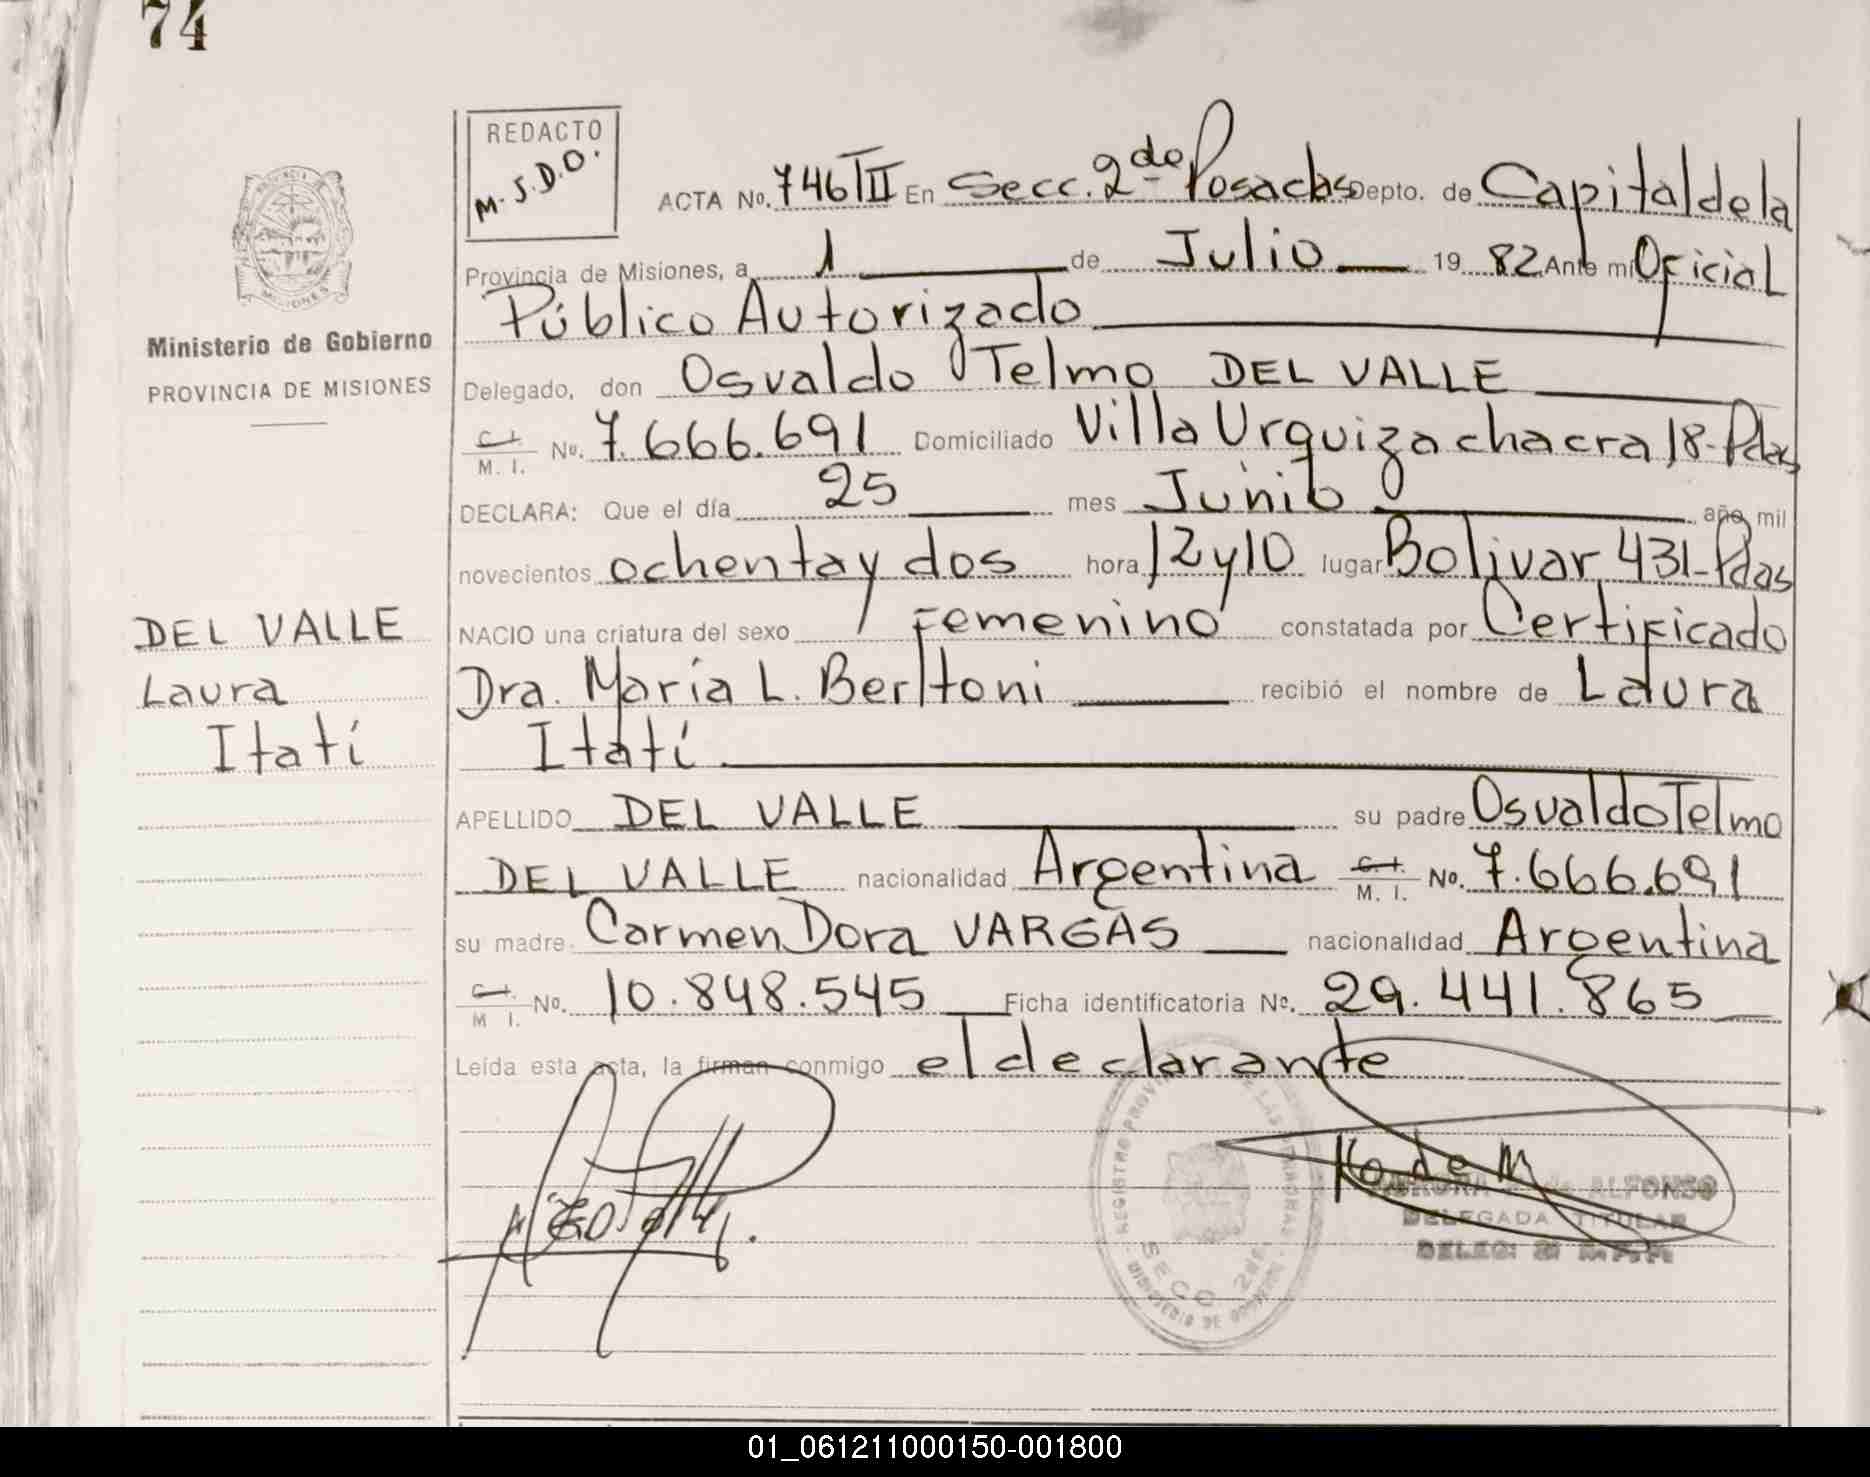 74
REDACTO
M.S.D.O.
ACTA No. 746 TII En Secc. 2da Posadas Depto. de Capital de la
Provincia de Misiones, a 1 de Julio 1982 Ante mi Oficial
Público Autorizado
Delegado, don Osvaldo Telmo DEL VALLE
C.I. M. I. No. 7.666.691 Domiciliado Villa Urquiza chacra 18-Pdas
DECLARA: Que el día 25 mes Junio año mil
novecientos ochenta y dos hora 12 y 10 lugar Bolívar 431-Pdas
NACIO una criatura del sexo Femenino constatada por Certificado
Dra. María L. Bertoni recibió el nombre de Laura
Itatí
APELLIDO DEL VALLE su padre Osvaldo Telmo
DEL VALLE nacionalidad Argentina C.I. M. I. No. 7.666.691
su madre Carmen Dora VARGAS nacionalidad Argentina
C.I. M I. No. 10.848.545 Ficha identificatoria No. 29.441.865
Leída esta acta, la firman conmigo el declarante
MISIONES
Ministerio de Gobierno
PROVINCIA DE MISIONES
DEL VALLE
Laura
Itatí
SECC 2
ALFONSO
DELEGADA TITULAR
01_061211000150-001800